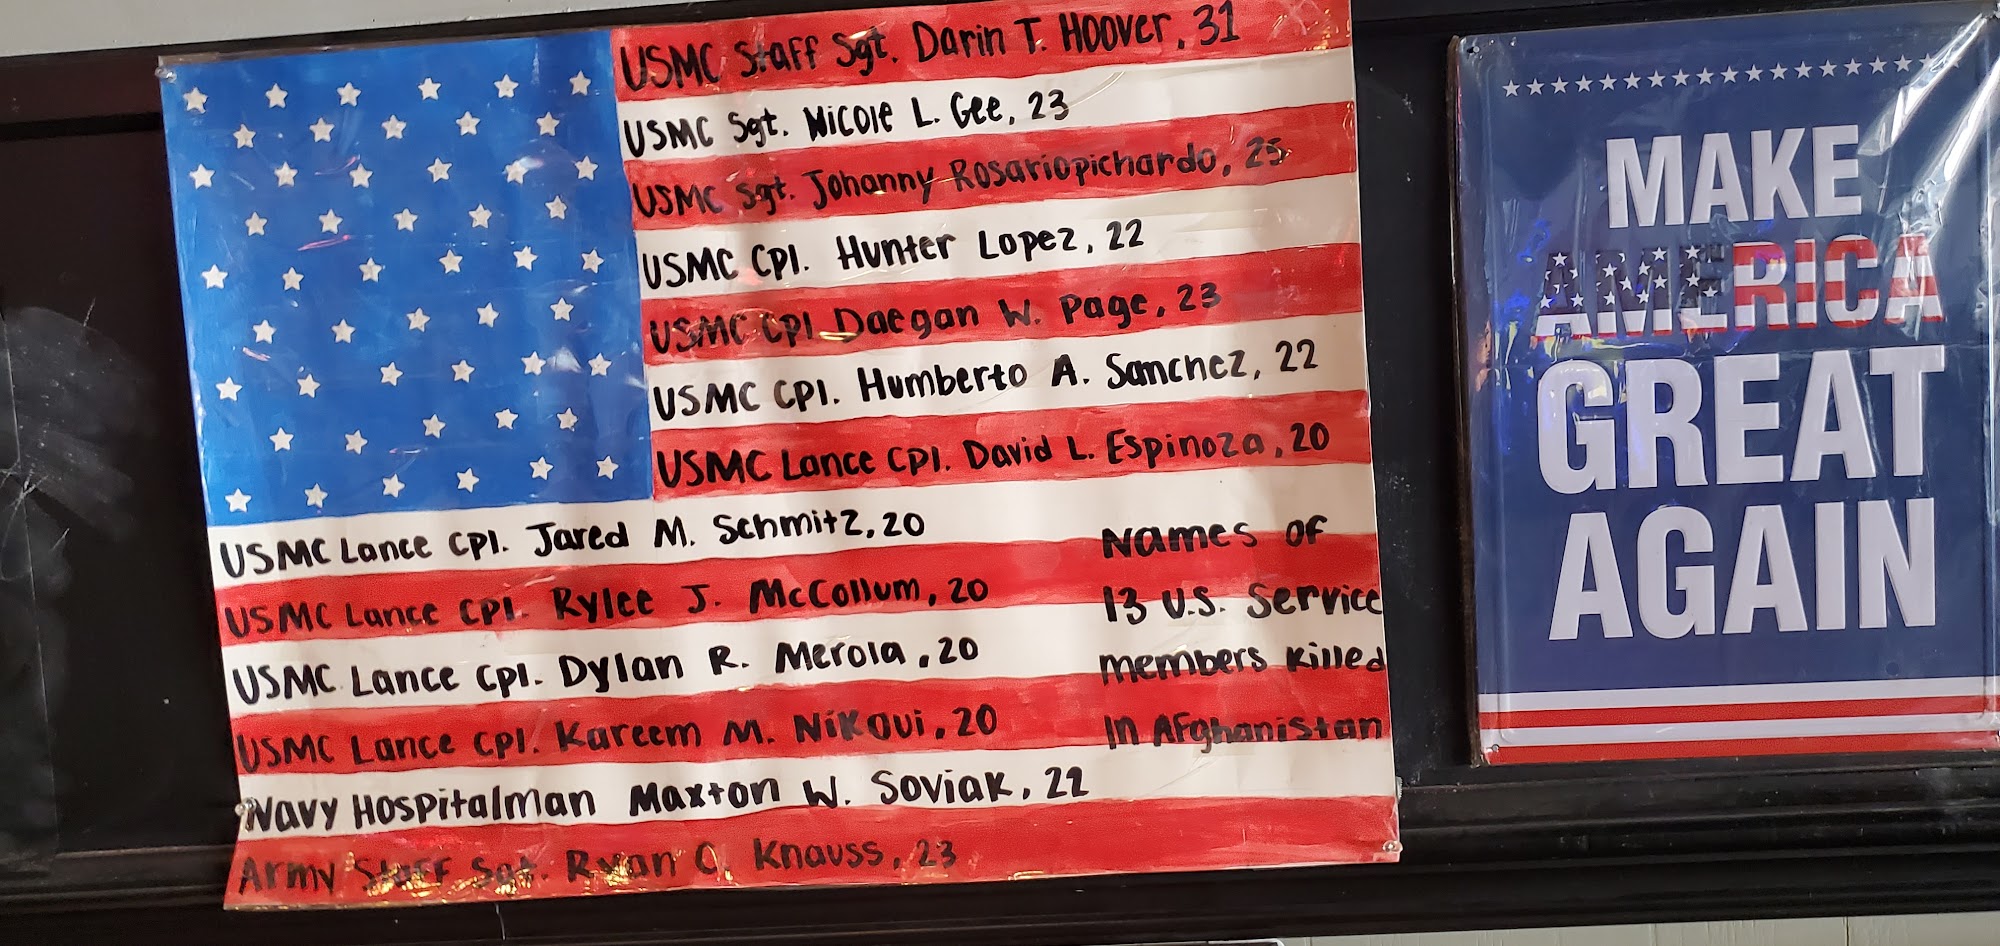 USMC Staff Sgt. Darin T. Hoover, 31
USMC Sgt. Nicole L. Gee, 23
USMC Sgt. Johanny Rosariopichardo, 25
USMC Cpl. Hunter Lopez, 22
USMC Cpl. Daegan W. Page, 23
USMC Cpl. Humberto A. Sanchez, 22
USMC Lance Cpl. David L. Espinoza, 20
USMC Lance Cpl. Jared M. Schmitz, 20
USMC Lance Cpl. Rylee J. McCollum, 20
USMC Lance Cpl. Dylan R. Merola, 20
USMC Lance Cpl. Kareem M. Nikoui, 20
Navy Hospitalman Maxton W. Soviak, 22
Army Staff Sgt. Ryan C. Knauss, 23
Names of
13 U.S. Service
members killed
In Afghanistan
MAKE
AMERICA
GREAT
AGAIN